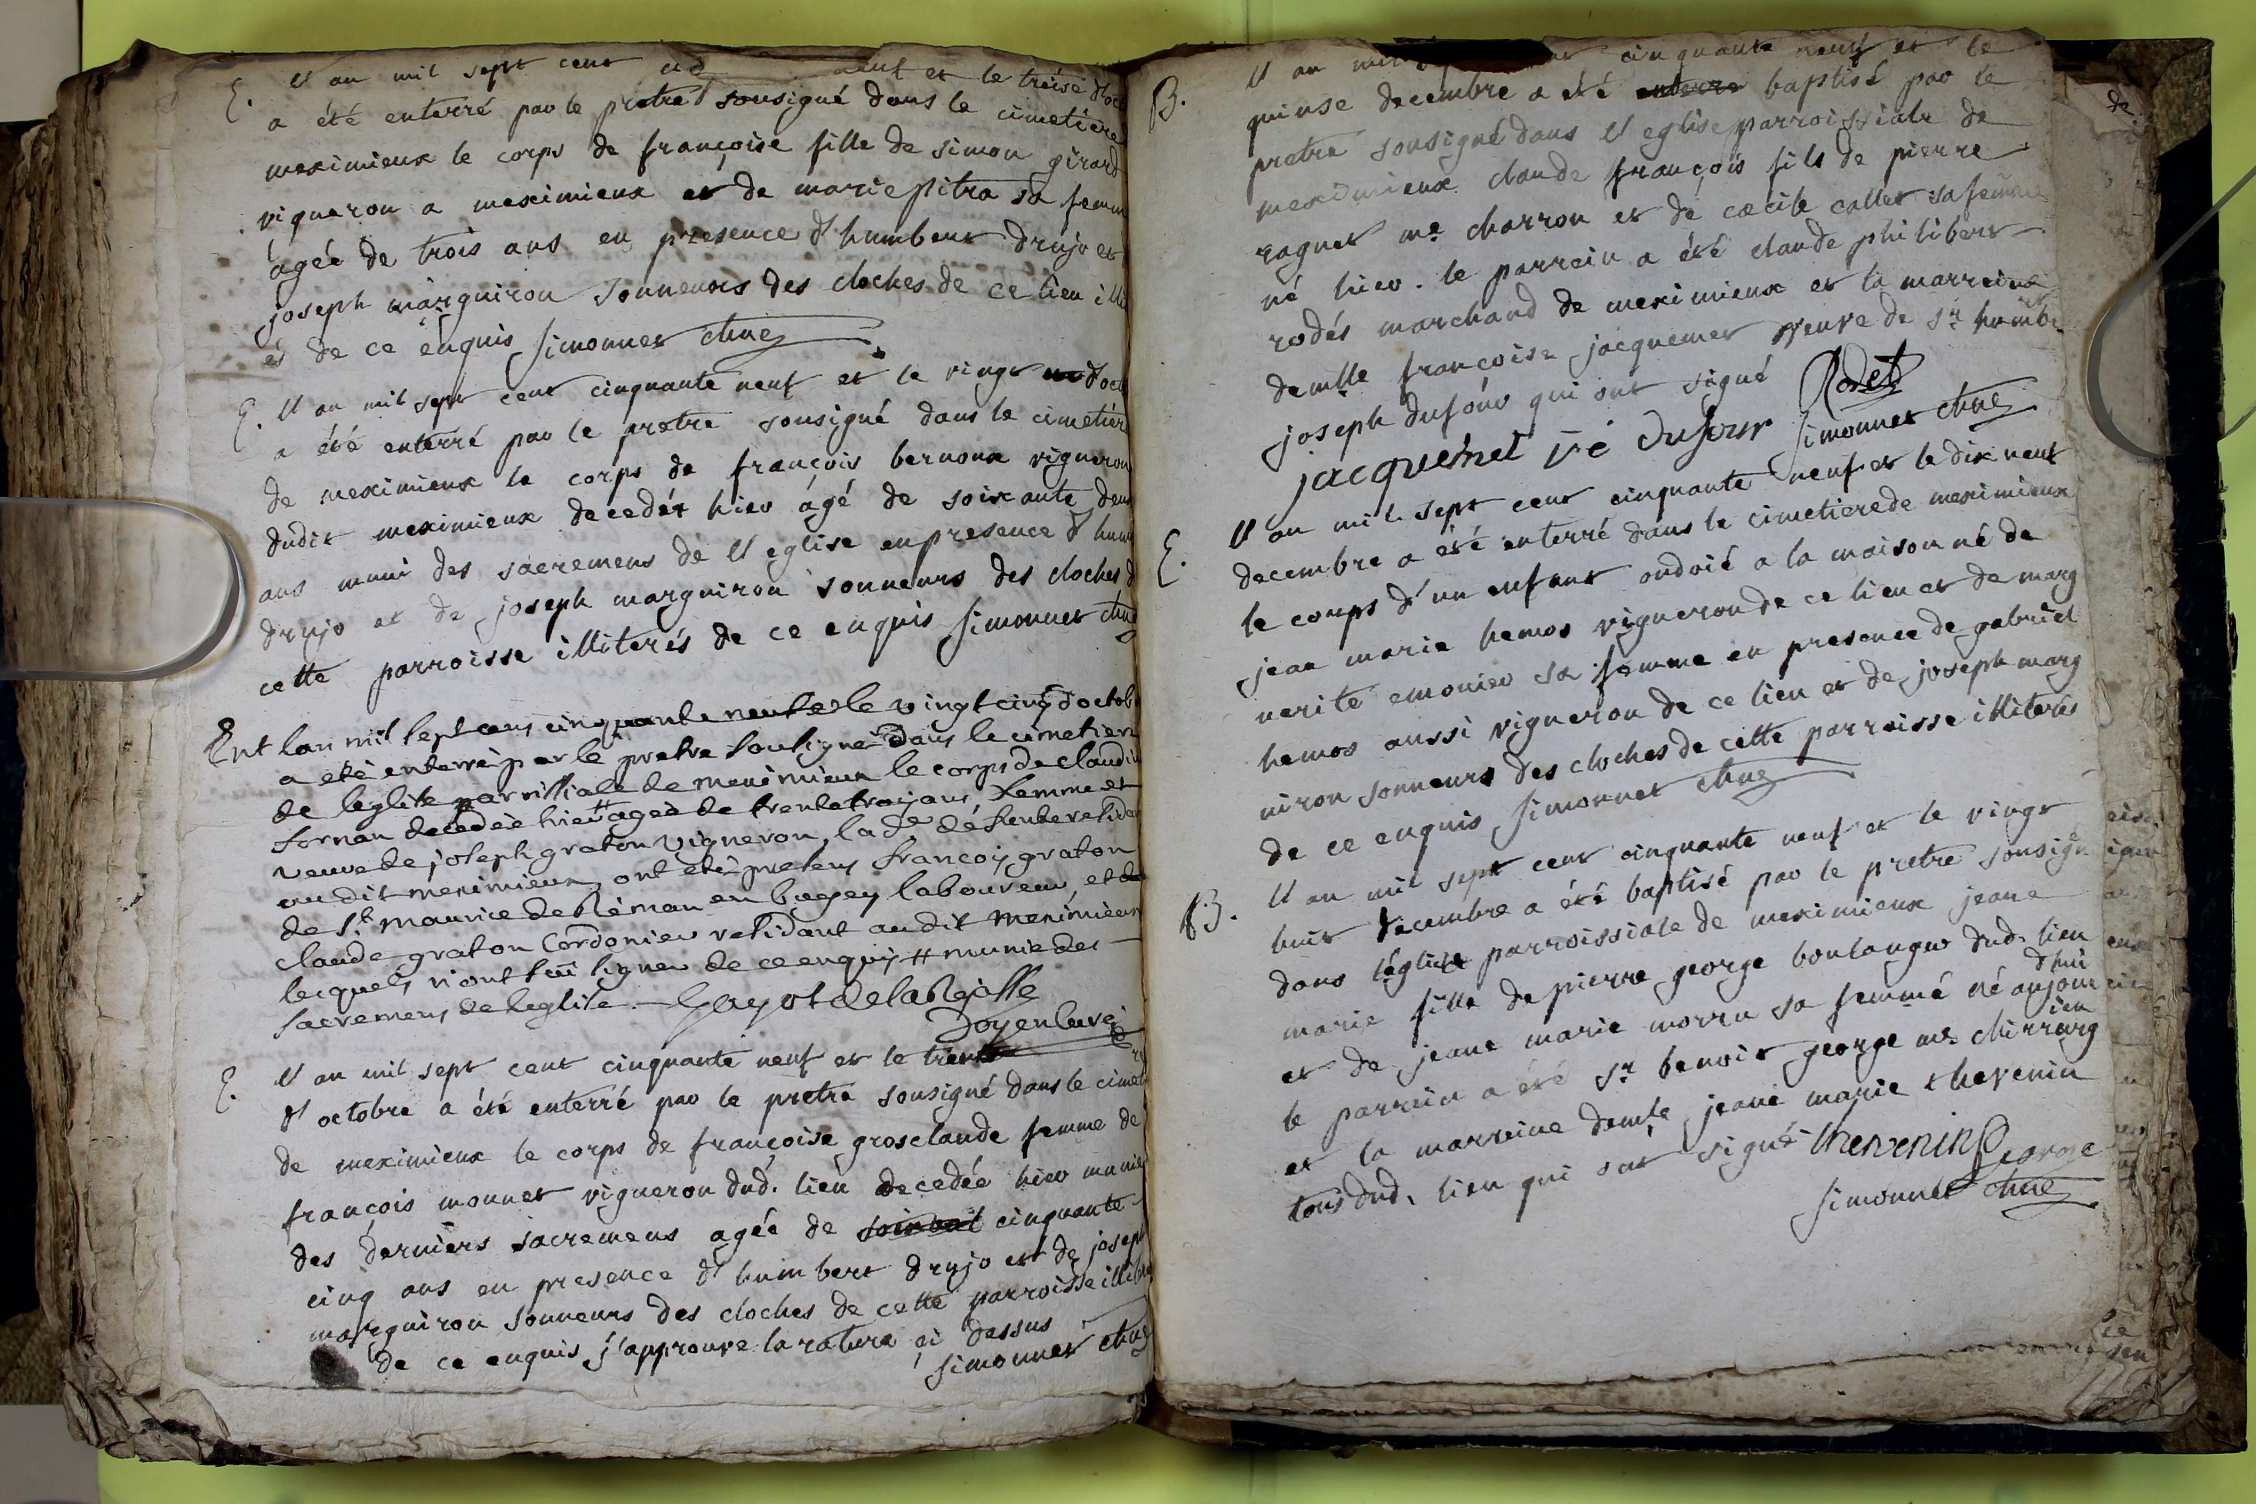 E. l'an mil sept cent neuf et le treise d'oct
a été enterré par le pretre sousigné dans le cimetiere
meximieux le corps de françoise fille de simon girard
vigneron a meximieux et de marie pitra sa femm
âgée de trois ans en presence d'humbert drujo et
joseph marguiron sonneurs des cloches de ce lieu illi
és de ce enquis simonnet
E. l'an mil sept cent cinquante neuf et le vingt d'oct
a été enterré par le pretre sousigné dans le cimetiere
de meximieux le corps de françois bernoux vigneron
dudit meximieux decedét hier âgé de soixante deux
ans muni des sacremens de l'eglise en presence d'hum
drujo et de joseph marguiron sonneurs des cloches d
cette parroisse illiterés de ce enquis simonnet
Ent lan mil sept cens cinquante neuf et le vingt cinq d'octob
a eté enterré par le pretre sousigné dans le cimetiere
de leglise parroissiale de meximieux le corps de claudi
fornan decedée hier # agée de trente troys ans, femme et
veuve de joseph graton vigneron, la de défunte resid
au dit meximieux, ont eté presens françoy graton
de St. maurice de Rèman en bugey laboureur, et de
claude graton Cordonier residant au dit meximieux
lesquels n'ont sçû signer de ce enquis # munie des
sacremens de leglise. Doyen Curé
E. l'an mil sept cent cinquante neuf et le trente
d'octobre a été enterré par le pretre sousigné dans le cimet
de meximieux le corps de françoise grosclaude femme de
françois monnet vigneron dud. lieu decedée hier munie
des derniers sacremens agée de cinquante
cinq ans en presence d'humbert drujo et de joseph
marguiron sonneurs des cloches de cette parroisse illite
de ce enquis j'approuve la rature ci dessus
simonnet
B. l'an mil cinquante neuf et le
quinse decembre a été enterré baptisé par le
pretre sousigné dans l'eglise parroissiale de
meximieux claude françois fils de pierre
ragnet me. charron et de cæcile collet sa femme
né hier. le parrein a été claude philibert
rodés marchand de meximieux et la marreine
demlle françoise jacquemet veuve de sr. humbert
joseph dufour qui ont signé Rodet
jacquemet vé Dufour simonnet
E. l'an mil sept cent cinquante neuf et le dix neuf
decembre a été enterré dans le cimetiere de meximieux
le corps d'un enfant ondoié a la maison né de
jean marie hemos vigneron de ce lieu et de marg
uerite emonier sa femme en presence de gabriel
hemos aussi vigneron de ce lieu et de joseph marg
uiron sonneurs des cloches de cette parroisse illiterés
de ce enquis simonnet
B. l'an mil sept cent cinquante neuf et le vingt
huit decembre a été baptisé par le pretre sousigné
dans l'eglise parroissiale de meximieux jeane
marie fille de pierre george boulanger dud. lieu
et de jeane marie morru sa femme né aujourd'hui
le parrein a été sr. benoit george me. chirurgien
et la marreine demlle jeane marie thevenin
tous dud. lieu qui ont signé thevenin George
simonnet